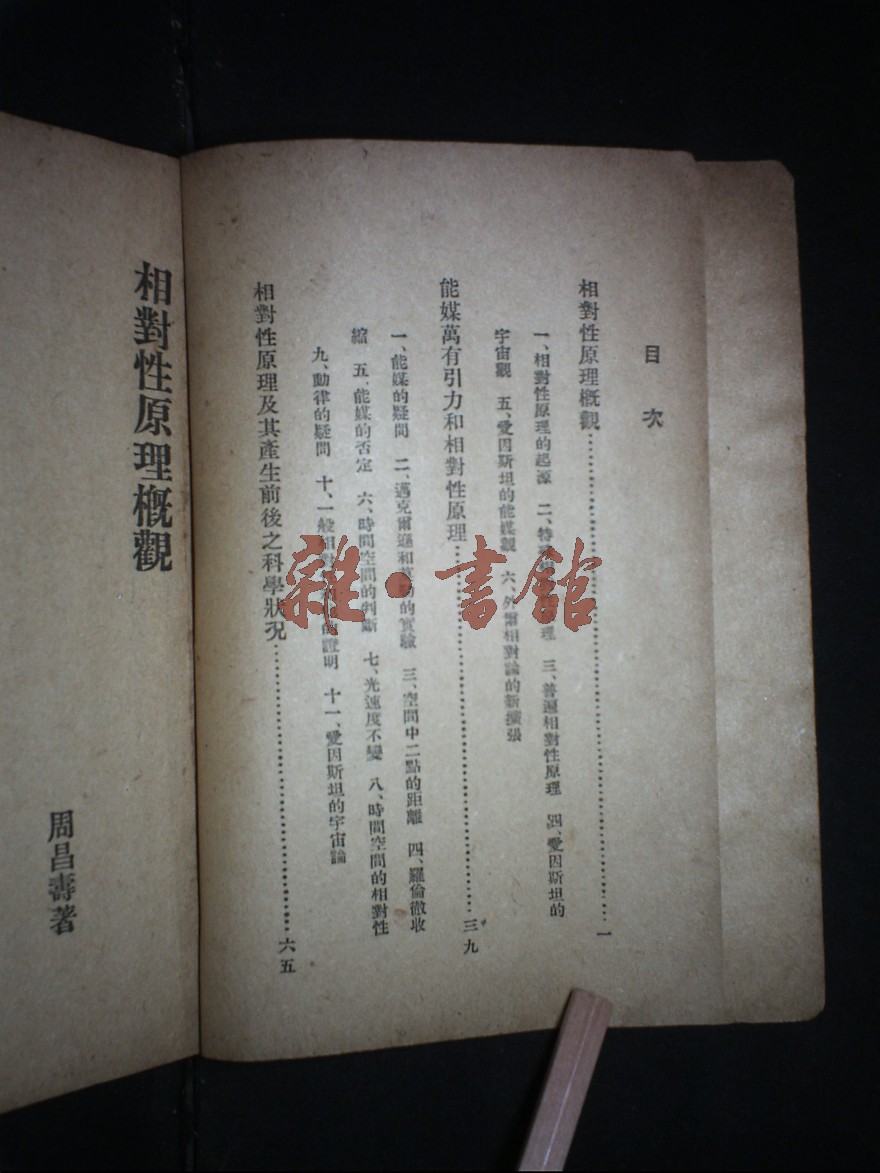 目次
相對性原理槪觀……一
一、相對性原理的起源 二、特 理 三、普遍相對性原理 四、愛因斯坦的
宇宙觀 五、愛因斯坦的能媒觀 六、外爾相對論的新擴張
能媒萬有引力和相對性原理……三九
一、能媒的疑問 二、邁克爾遜和 的實驗 三、空間中二點的距離 四、羅倫徹收
縮 五、能媒的否定 六、時間空間的判斷 七、光速度不變 八、時間空間的相對性
九、動律的疑問 十、一般相對 的證明 十一、愛因斯坦的宇宙論
相對性原理及其產生前後之科學狀况……六五
相對性原理槪觀
周昌壽著
雜·書館